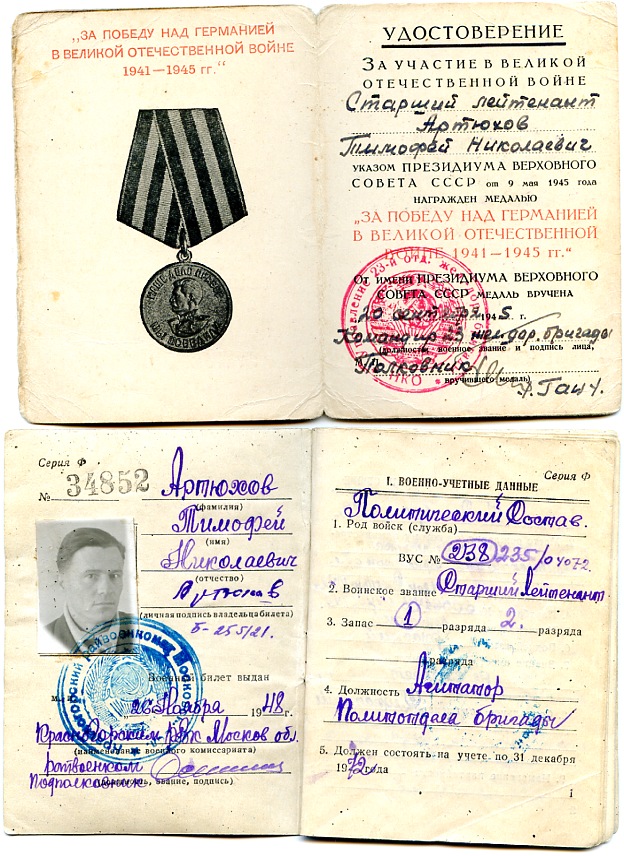 „ЗА ПОБЕДУ НАД ГЕРМАНИЕЙ
В ВЕЛИКОЙ ОТЕЧЕСТВЕННОЙ ВОЙНЕ
1941—1945 гг.“
НАШЕ ДЕЛО ПРАВОЕ
МЫ ПОБЕДИЛИ
УДОСТОВЕРЕНИЕ
ЗА УЧАСТИЕ В ВЕЛИКОЙ
ОТЕЧЕСТВЕННОЙ ВОЙНЕ
Старший лейтенант
Артюхов
Тимофей Николаевич
УКАЗОМ ПРЕЗИДИУМА ВЕРХОВНОГО
СОВЕТА СССР от 9 мая 1945 года
НАГРАЖДЕН МЕДАЛЬЮ
"ЗА ПОБЕДУ НАД ГЕРМАНИЕЙ
В ВЕЛИКОЙ ОТЕЧЕСТВЕННОЙ
ВОЙНЕ 1941—1945 гг.“
ОТ ИМЕНИ ПРЕЗИДИУМА ВЕРХОВНОГО
СОВЕТА СССР МЕДАЛЬ ВРУЧЕНА
20 сентября 1945 г.
Командир 23 жел.дор. бригады
(должность, военное звание и подпись лица,
Полковник
вручившего медаль)
Серия Ф
№ 34852
Артюхов
(фамилия)
Тимофей
(имя)
Николаевич
(отчество)
Артюхов
(личная подпись владельца билета)
Б-255/21.
Военный билет выдан
26 Ноября 1948 г.
Красногорским РВК Москов обл.
(наименование военного комиссариата)
Райвоенком
Подполковник
(должность, звание, подпись)
Серия Ф
I. ВОЕННО-УЧЕТНЫЕ ДАННЫЕ
Политический Состав.
1. Род войск (служба)
ВУС № 238 235/04072
2. Воинское звание Старший Лейтенант
3. Запас 1 разряда 2. разряда
разряда
4. Должность Агитатор
Политотдела бригады
5. Должен состоять на учете по 31 декабря
1972 года
1